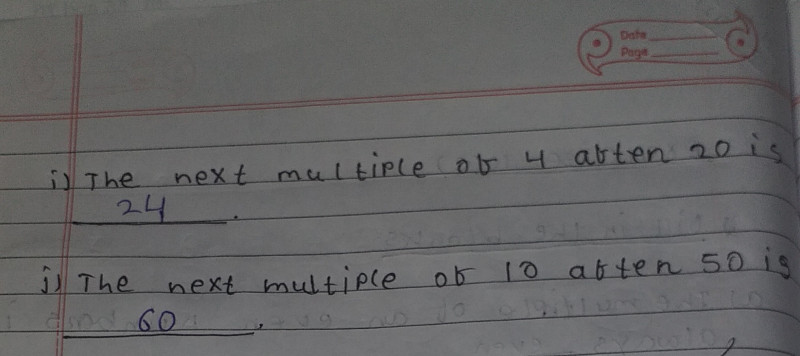 Date
Page
i) The next multiple of 4 after 20 is
24.
j) The next multiple of 10 after 50 is
60.